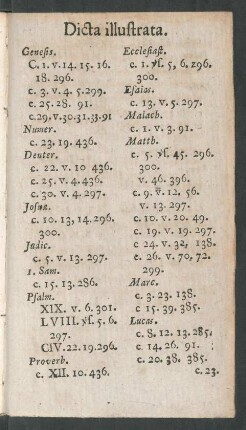 Dicta illustrata.
Genesis.
C. 1. v. 14. 15. 16.
18. 296.
c. 3. v. 4. 5. 299.
c. 25. 28. 91.
c. 29. v. 30. 31. 33. 91
Numer.
c. 23. 19. 436.
Deuter.
c. 22. v. 10 436.
c. 25. v. 4. 436.
c. 30. v. 4. 297.
Josua.
c. 10. 13, 14. 296.
300.
Judic.
c. 5. v. 13. 297.
1. Sam.
c. 15. 13. 286.
Psalm.
XIX. v. 6. 301.
LVIII. ꝟs. 5. 6.
297.
CIV. 22. 19. 296.
Proverb.
c. XII. 10. 436.
Ecclesiast.
c. 1. ꝟs. 5, 6. 296.
300.
Esaias.
c. 13. v. 5. 297.
Malach.
c. 1. v. 3. 91.
Matth.
c. 5. ꝟs. 45. 296.
300.
v. 46. 396.
c. 9. ꝟ. 12. 56.
v. 13. 297.
c. 10. v. 20. 49.
c. 19. v. 19. 297.
c 24. v. 32, 138.
c. 26. v. 70, 72.
299.
Marc.
c. 3. 23. 138.
c 15. 39. 385.
Lucas.
c. 8. 12. 13. 285.
c. 14. 26. 91.
c. 20. 38. 385.
c. 23.